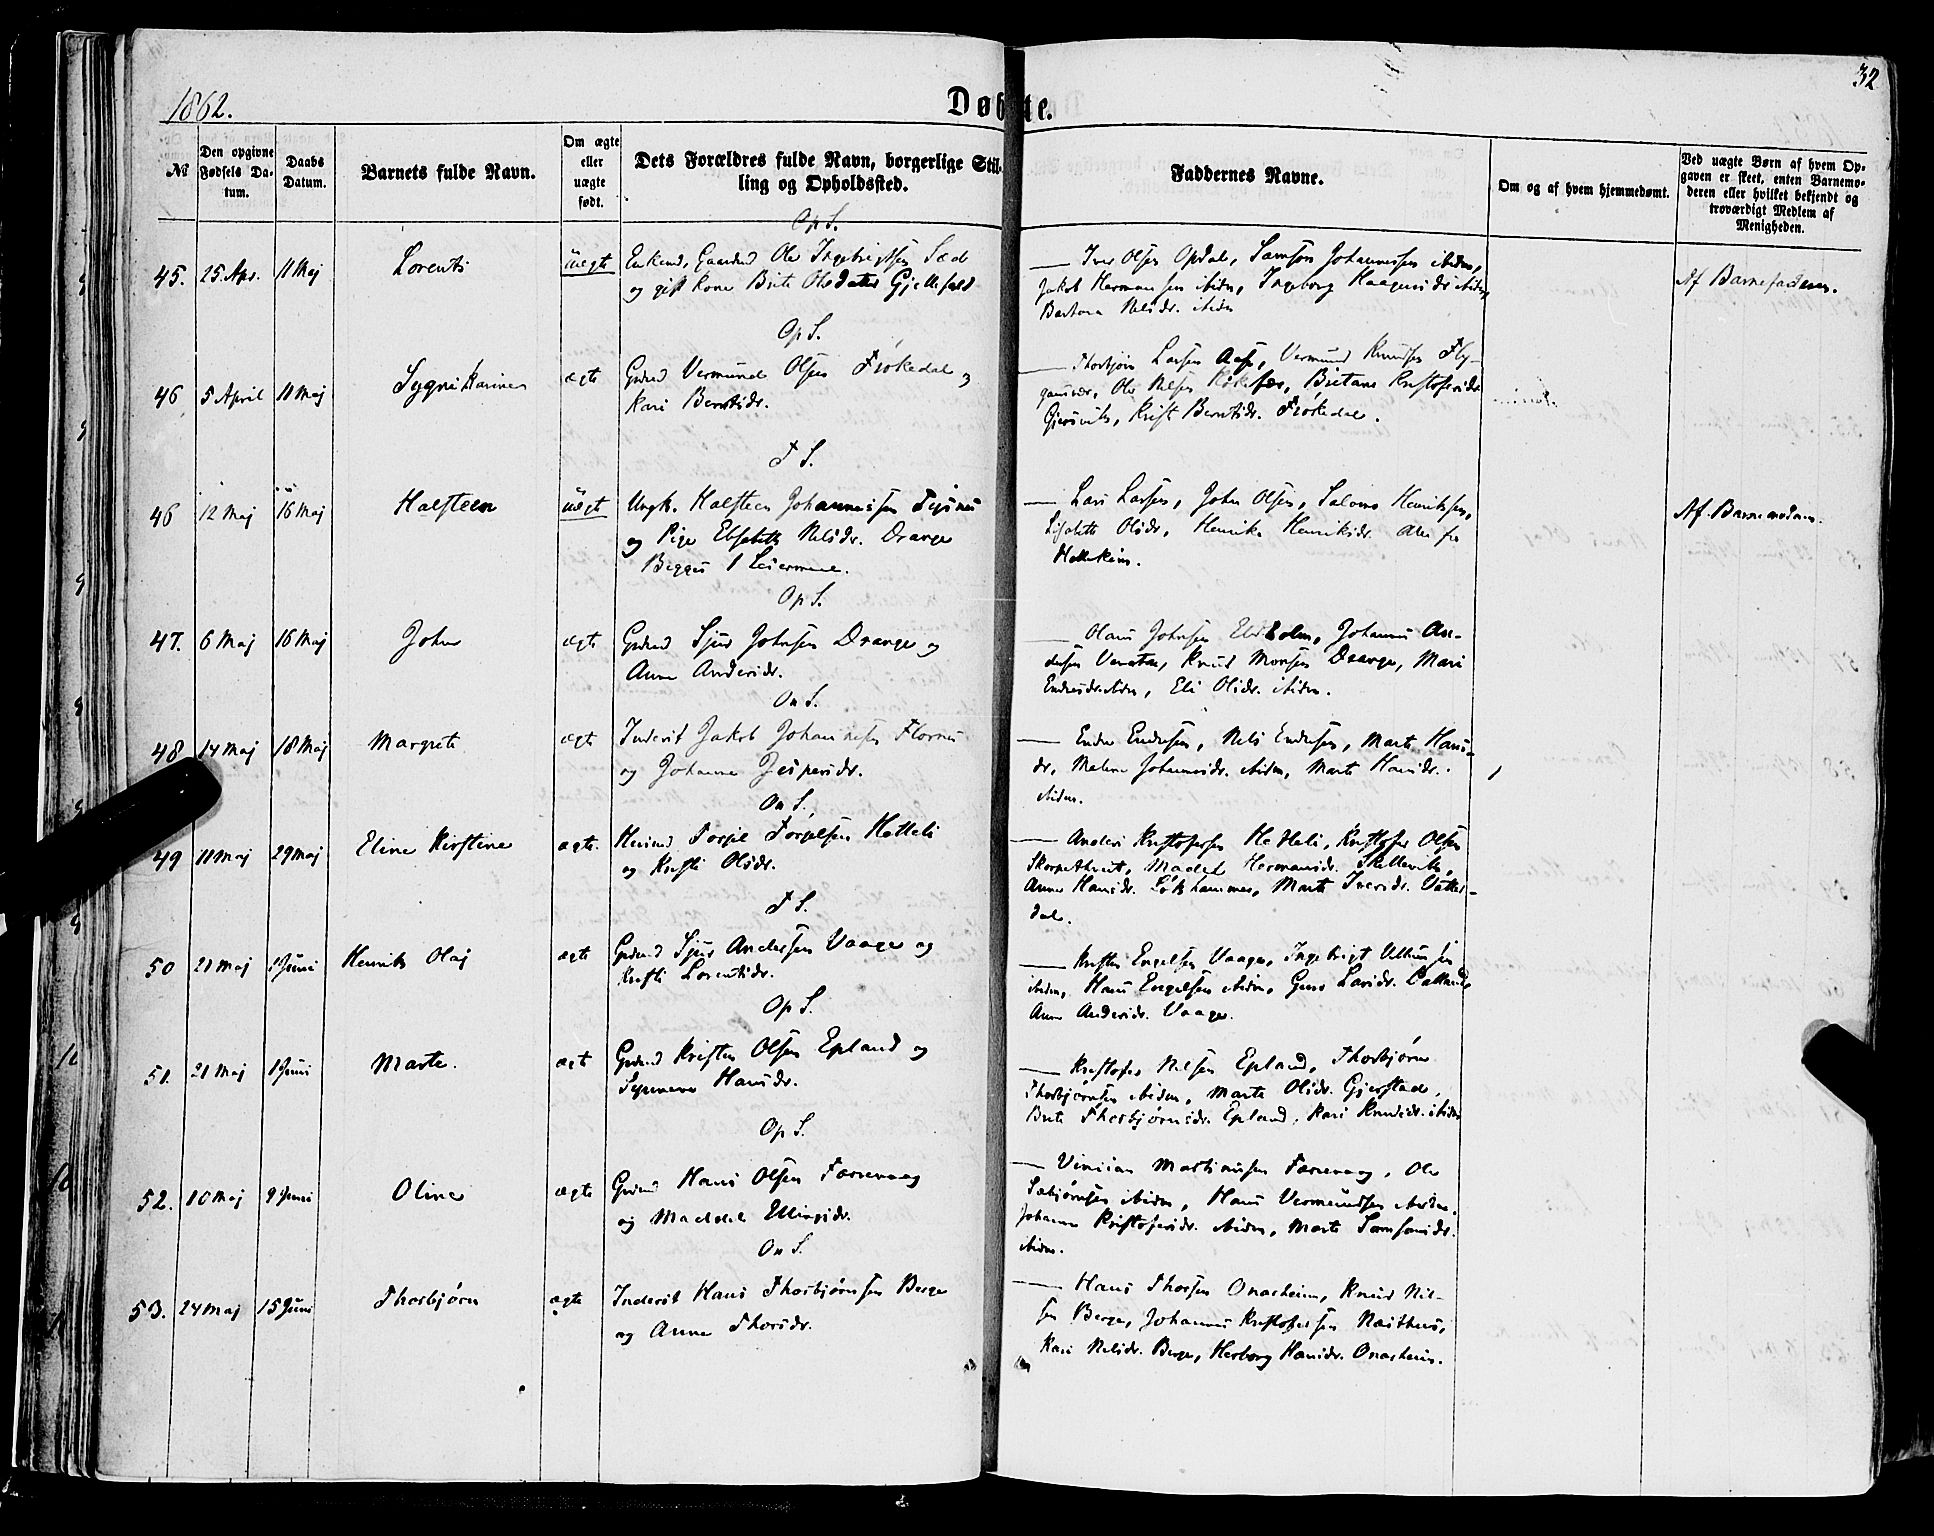 1862.
Døbte.
32
№
Den opgivne Fødsels Datum.
Daabs Datum.
Barnets fulde Navn.
Om ægte eller uægte født.
Dets Forældres fulde Navn, borgerlige Stilling og Opholdssted.
Faddernes Navne.
Om og af hvem hjemmedømt.
Ved uægte Børn af hvem Opgaven er skeet, enten Barnemoderen eller hvilket bekjendt og troværdigt Medlem af Menigheden.
Op S.
45. 25. Apr. 11 Maj Lorents uægt Enkemd, Gaardmd Ole Ingebrigtsen
og gift Kone Brite Olsdatter Gjellefald
— Iver Olsen Opdal, Samson Johannessen ibidm,
Jakob Hermansen ibidm, Ingeborg Haagensdr ibidm,
Barbara Nelsdr. ibidm
Af Barnefaderen.
Op S.
46 5 April 11 Maj Sygni Karine ægte Grdmd Vermund Olsen Frøkedal og
Kari Berntsdr.
— Thorbjørn Larsen Aase, Vermund Knudsen Fly-
gansvær, Ole Nelsen Britane Kristofersdr
Gjersvik, Krist Berntsdr. Frøkedal.
T S.
46 12 Maj 16 Maj Halsteen uægt Ungk. Halsteen Johannessen Tysnæs
og Pige Elisabeth Nelsdr. Drange
Begges 1 Leiermaal.
— Lars Larsen, John Olsen, Salomo Henriksen,
Lisabeth Olsdr, Henrika Henriksdr. alle fra
Af Barnemodren.
Op S.
47. 6 Maj 16 Maj John ægte Grdmd Sjur Johnsen Drange og
Anna Andersdr.
— Hans Johnsen Eldholm, Johannes An-
dersen Knud Monsen Drange, Mari
Endresdr. ibidm, Eli Olsdr. ibidm.
On S.
48 14 Maj 18 Maj Margrete ægte Inderst Jakob Johannessen Flornes
og Johanne Jespersdr.
— Endre Endresen, Nels Endresen, Marte Hans-
dr, Malene Johannesdr. ibidm, Marte Hansdr.
ibidm.
On S.
49 11 Maj 29 Maj Eline Kirstine ægte. Husmd Torgil Torgilsen Hetteli
og Kristi Olsdr.
— Anders Kristofersen Hetteli, Kristofer Olsen
Madel Hermansdr. Skillevik,
Anna Hansdr. Løkhammer, Marte Iversdr. Vatter-
dal.
T S.
50 21 Maj 1 Juni Henrik Olaj ægte Grdmd Sjur Andersen Vaage og
Kristi Lorentsdr.
— Kristen Engelsen Vaage, Ingebrigt Villumsen
ibidm, Hans Engelsen ibidm, Guro Larsdr.
Anna Andersdr. Vaage.
Op S.
51. 21 Maj 1 Juni Marte. ægt Grdmd Kristen Olsen Epland og
Hansdr.
— Kristofer Nelsen Epland, Thorbjørn
Thorbjørnsen ibidm, Marte Olsdr. Gjerstad,
Brite Thorbjørnsdr. Epland, Kari Knudsdr. ibidm
Op S.
52. 10 Maj 9 Juni Oline ægte Grdmd Hans Olsen Færevaag
og Maddel Ellingsdr.
— Vinsian Martinusen Færevaag, Ole
Sæbjørnsen ibidm, Hans Vermundsen ibidm,
Johanna Kristofersdr. ibidm, Marte Samsonsdr.
ibidm.
On S.
53. 24 Maj 15 Juni Thorbjørn ægte Inderst Hans Thorbjørnsen Berge
og Anna Thorsdr.
— Hans Thorsen Onarheim, Knud Nil-
sen Berge, Johannes Kristofersen Nasthus,
Kari Nelsdr. Berge, Herborg Hansdr. Onarheim.